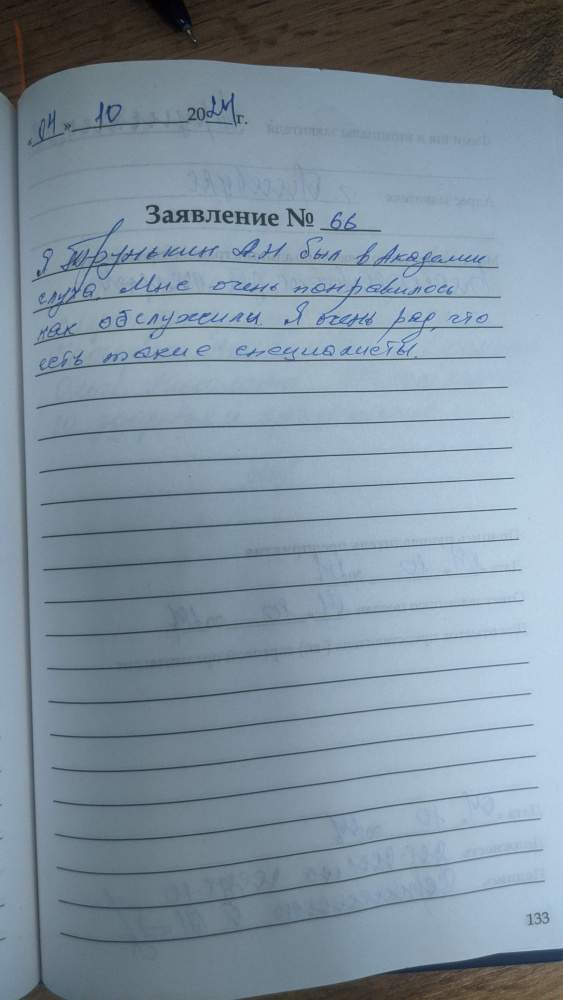 «04» 10 2024 г.
Заявление № 66
Я Трунькин А.Н был в Академии
слуха. Мне очень понравилось
как обслужили. Я очень рад, что
есть такие специалисты.
133